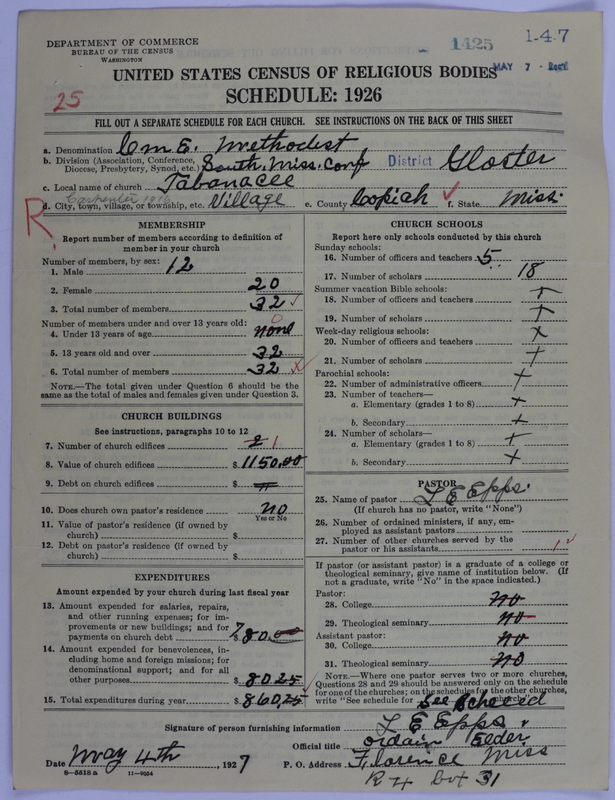 DEPARTMENT OF COMMERCE
BUREAU OF THE CENSUS
WASHINGTON
1425
1-4-7
MAY 7 - Rec'd
UNITED STATES CENSUS OF RELIGIOUS BODIES
SCHEDULE: 1926
25
FILL OUT A SEPARATE SCHEDULE FOR EACH CHURCH. SEE INSTRUCTIONS ON THE BACK OF THIS SHEET
a. Denomination C.M.E. Methodist
b. Division (Association, Conference, Diocese, Presbytery, Synod, etc.) South. Miss. Conf District Gloster
c. Local name of church Tabanacee
Carpenter 1916
d. City, town, village, or township, etc. Village e. County Copiah f. State Miss.
R
MEMBERSHIP
Report number of members according to definition of member in your church
Number of members, by sex:
1. Male 12
2. Female 20
3. Total number of members 32
Number of members under and over 13 years old:
4. Under 13 years of age none 0
5. 13 years old and over 32
6. Total number of members 32
NOTE.—The total given under Question 6 should be the same as the total of males and females given under Question 3.
CHURCH BUILDINGS
See instructions, paragraphs 10 to 12
7. Number of church edifices 2 1
8. Value of church edifices $1150.00
9. Debt on church edifices $
10. Does church own pastor's residence no
Yes or No
11. Value of pastor's residence (if owned by church) $
12. Debt on pastor's residence (if owned by church) $
EXPENDITURES
Amount expended by your church during last fiscal year
13. Amount expended for salaries, repairs, and other running expenses; for improvements or new buildings; and for payments on church debt $780.00
14. Amount expended for benevolences, including home and foreign missions; for denominational support; and for all other purposes $80.25
15. Total expenditures during year $860.25
CHURCH SCHOOLS
Report here only schools conducted by this church
Sunday schools:
16. Number of officers and teachers 5
17. Number of scholars 18
Summer vacation Bible schools:
18. Number of officers and teachers +
19. Number of scholars +
Week-day religious schools:
20. Number of officers and teachers x
21. Number of scholars +
Parochial schools:
22. Number of administrative officers +
23. Number of teachers—
a. Elementary (grades 1 to 8) +
b. Secondary +
24. Number of scholars—
a. Elementary (grades 1 to 8) +
b. Secondary +
PASTOR
25. Name of pastor L E Epps.
(If church has no pastor, write "None")
26. Number of ordained ministers, if any, employed as assistant pastors
27. Number of other churches served by the pastor or his assistants 1
If pastor (or assistant pastor) is a graduate of a college or theological seminary, give name of institution below. (If not a graduate, write "No" in the space indicated.)
Pastor:
28. College no
29. Theological seminary no
Assistant pastor:
30. College no
31. Theological seminary no
NOTE.—Where one pastor serves two or more churches, Questions 28 and 29 should be answered only on the schedule for one of the churches; on the schedules for the other churches, write "See schedule for
Signature of person furnishing information L E Epps
Official title ordain Eelder
Date May 4th, 1927 P. O. Address Florence Miss
R 4 box 31
8-5518 a 11-9054